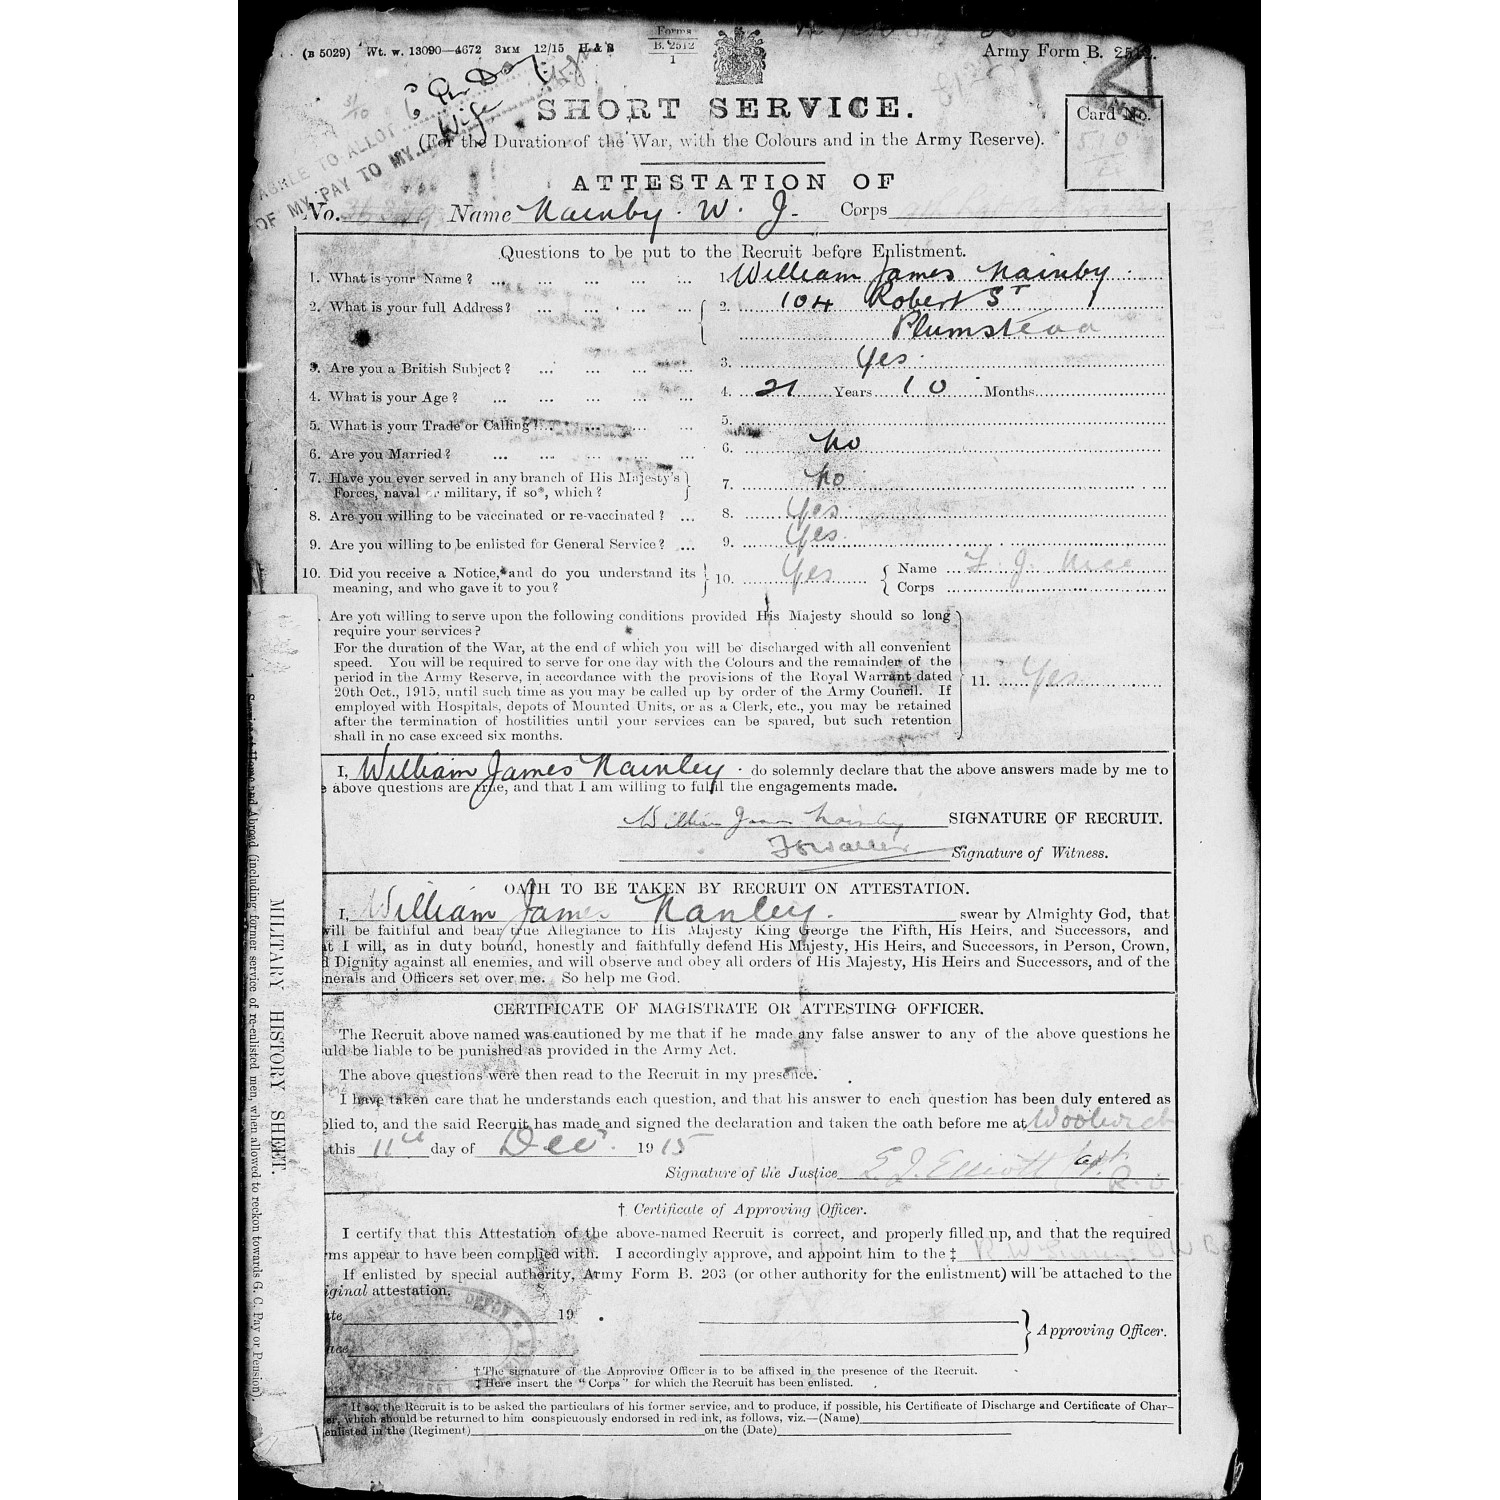 (B 5029) Wt. w. 13090—4672 3MM 12/15 H & S
Forms
B. 2512
1
Army Form B. 2512.
6 Per Day
Wife
AGREE TO ALLOT
OF MY PAY TO MY
SHORT SERVICE.
Card No.
(For the Duration of the War, with the Colours and in the Army Reserve).
ATTESTATION OF
No. Name Nainby. W. J. Corps
Questions to be put to the Recruit before Enlistment.
1. What is your Name? ... ... ... ... ... 1. William James Nainby.
2. What is your full Address? ... ... ... ... 2. 104 Robert St
Plumstead
3. Are you a British Subject? ... ... ... ... 3. Yes.
4. What is your Age? ... ... ... ... ... 4. 21 Years 10 Months
5. What is your Trade or Calling? ... ... ... ... 5.
6. Are you Married? ... ... ... ... ... 6. No
7. Have you ever served in any branch of His Majesty's
Forces, naval or military, if so*, which? 7. No
8. Are you willing to be vaccinated or re-vaccinated? ... 8. Yes.
9. Are you willing to be enlisted for General Service? ... 9. Yes.
10. Did you receive a Notice, and do you understand its
meaning, and who gave it to you? 10. Yes Name
Corps
Are you willing to serve upon the following conditions provided His Majesty should so long
require your services?
For the duration of the War, at the end of which you will be discharged with all convenient
speed. You will be required to serve for one day with the Colours and the remainder of the
period in the Army Reserve, in accordance with the provisions of the Royal Warrant dated
20th Oct., 1915, until such time as you may be called up by order of the Army Council. If
employed with Hospitals, depots of Mounted Units, or as a Clerk, etc., you may be retained
after the termination of hostilities until your services can be spared, but such retention
shall in no case exceed six months.
11. Yes.
I, William James Nainley. do solemnly declare that the above answers made by me to
above questions are true, and that I am willing to fulfil the engagements made.
William James Nainby SIGNATURE OF RECRUIT.
Signature of Witness.
OATH TO BE TAKEN BY RECRUIT ON ATTESTATION.
I, William James Nanley. swear by Almighty God, that
will be faithful and bear true Allegiance to His Majesty King George the Fifth, His Heirs, and Successors, and
I will, as in duty bound, honestly and faithfully defend His Majesty, His Heirs, and Successors, in Person, Crown,
Dignity against all enemies, and will observe and obey all orders of His Majesty, His Heirs and Successors, and of the
nerals and Officers set over me. So help me God.
CERTIFICATE OF MAGISTRATE OR ATTESTING OFFICER.
The Recruit above named was cautioned by me that if he made any false answer to any of the above questions he
uld be liable to be punished as provided in the Army Act.
The above questions were then read to the Recruit in my presence.
I have taken care that he understands each question, and that his answer to each question has been duly entered as
plied to, and the said Recruit has made and signed the declaration and taken the oath before me at Woolwich
this 11th day of Dec. 1915
Signature of the Justice E. J. Elliott Capt.
† Certificate of Approving Officer.
I certify that this Attestation of the above-named Recruit is correct, and properly filled up, and that the required
ms appear to have been complied with. I accordingly approve, and appoint him to the ‡
If enlisted by special authority, Army Form B. 203 (or other authority for the enlistment) will be attached to the
iginal attestation.
te 19
ace
Approving Officer.
† The signature of the Approving Officer is to be affixed in the presence of the Recruit.
‡ Here insert the "Corps" for which the Recruit has been enlisted.
* If so, the Recruit is to be asked the particulars of his former service, and to produce, if possible, his Certificate of Discharge and Certificate of Char-
er, which should be returned to him conspicuously endorsed in red ink, as follows, viz.—(Name)
enlisted in the (Regiment) on the (Date)
MILITARY HISTORY SHEET.
Abroad (including former service of re-enlisted men, when allowed to reckon towards G. C. Pay or Pension).